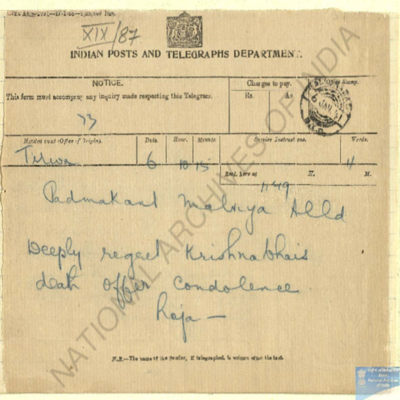 XIX/87
INDIAN POSTS AND TELEGRAPHS DEPARTMENT.
NOTICE.
This form must accompany any inquiry made respecting this Telegram.
Charges to pay.
Rs. As.
73
Date Hour. Minute Words.
Tirwa 6 10 15 11
H. M.
11/49
Padmakant Malviya Alld
Deeply regret Krishnabhais
death offer condolence
Raja —
N.B.—The name of the Sender, if telegraphed, is written after the text.
NATIONAL ARCHIVES OF INDIA